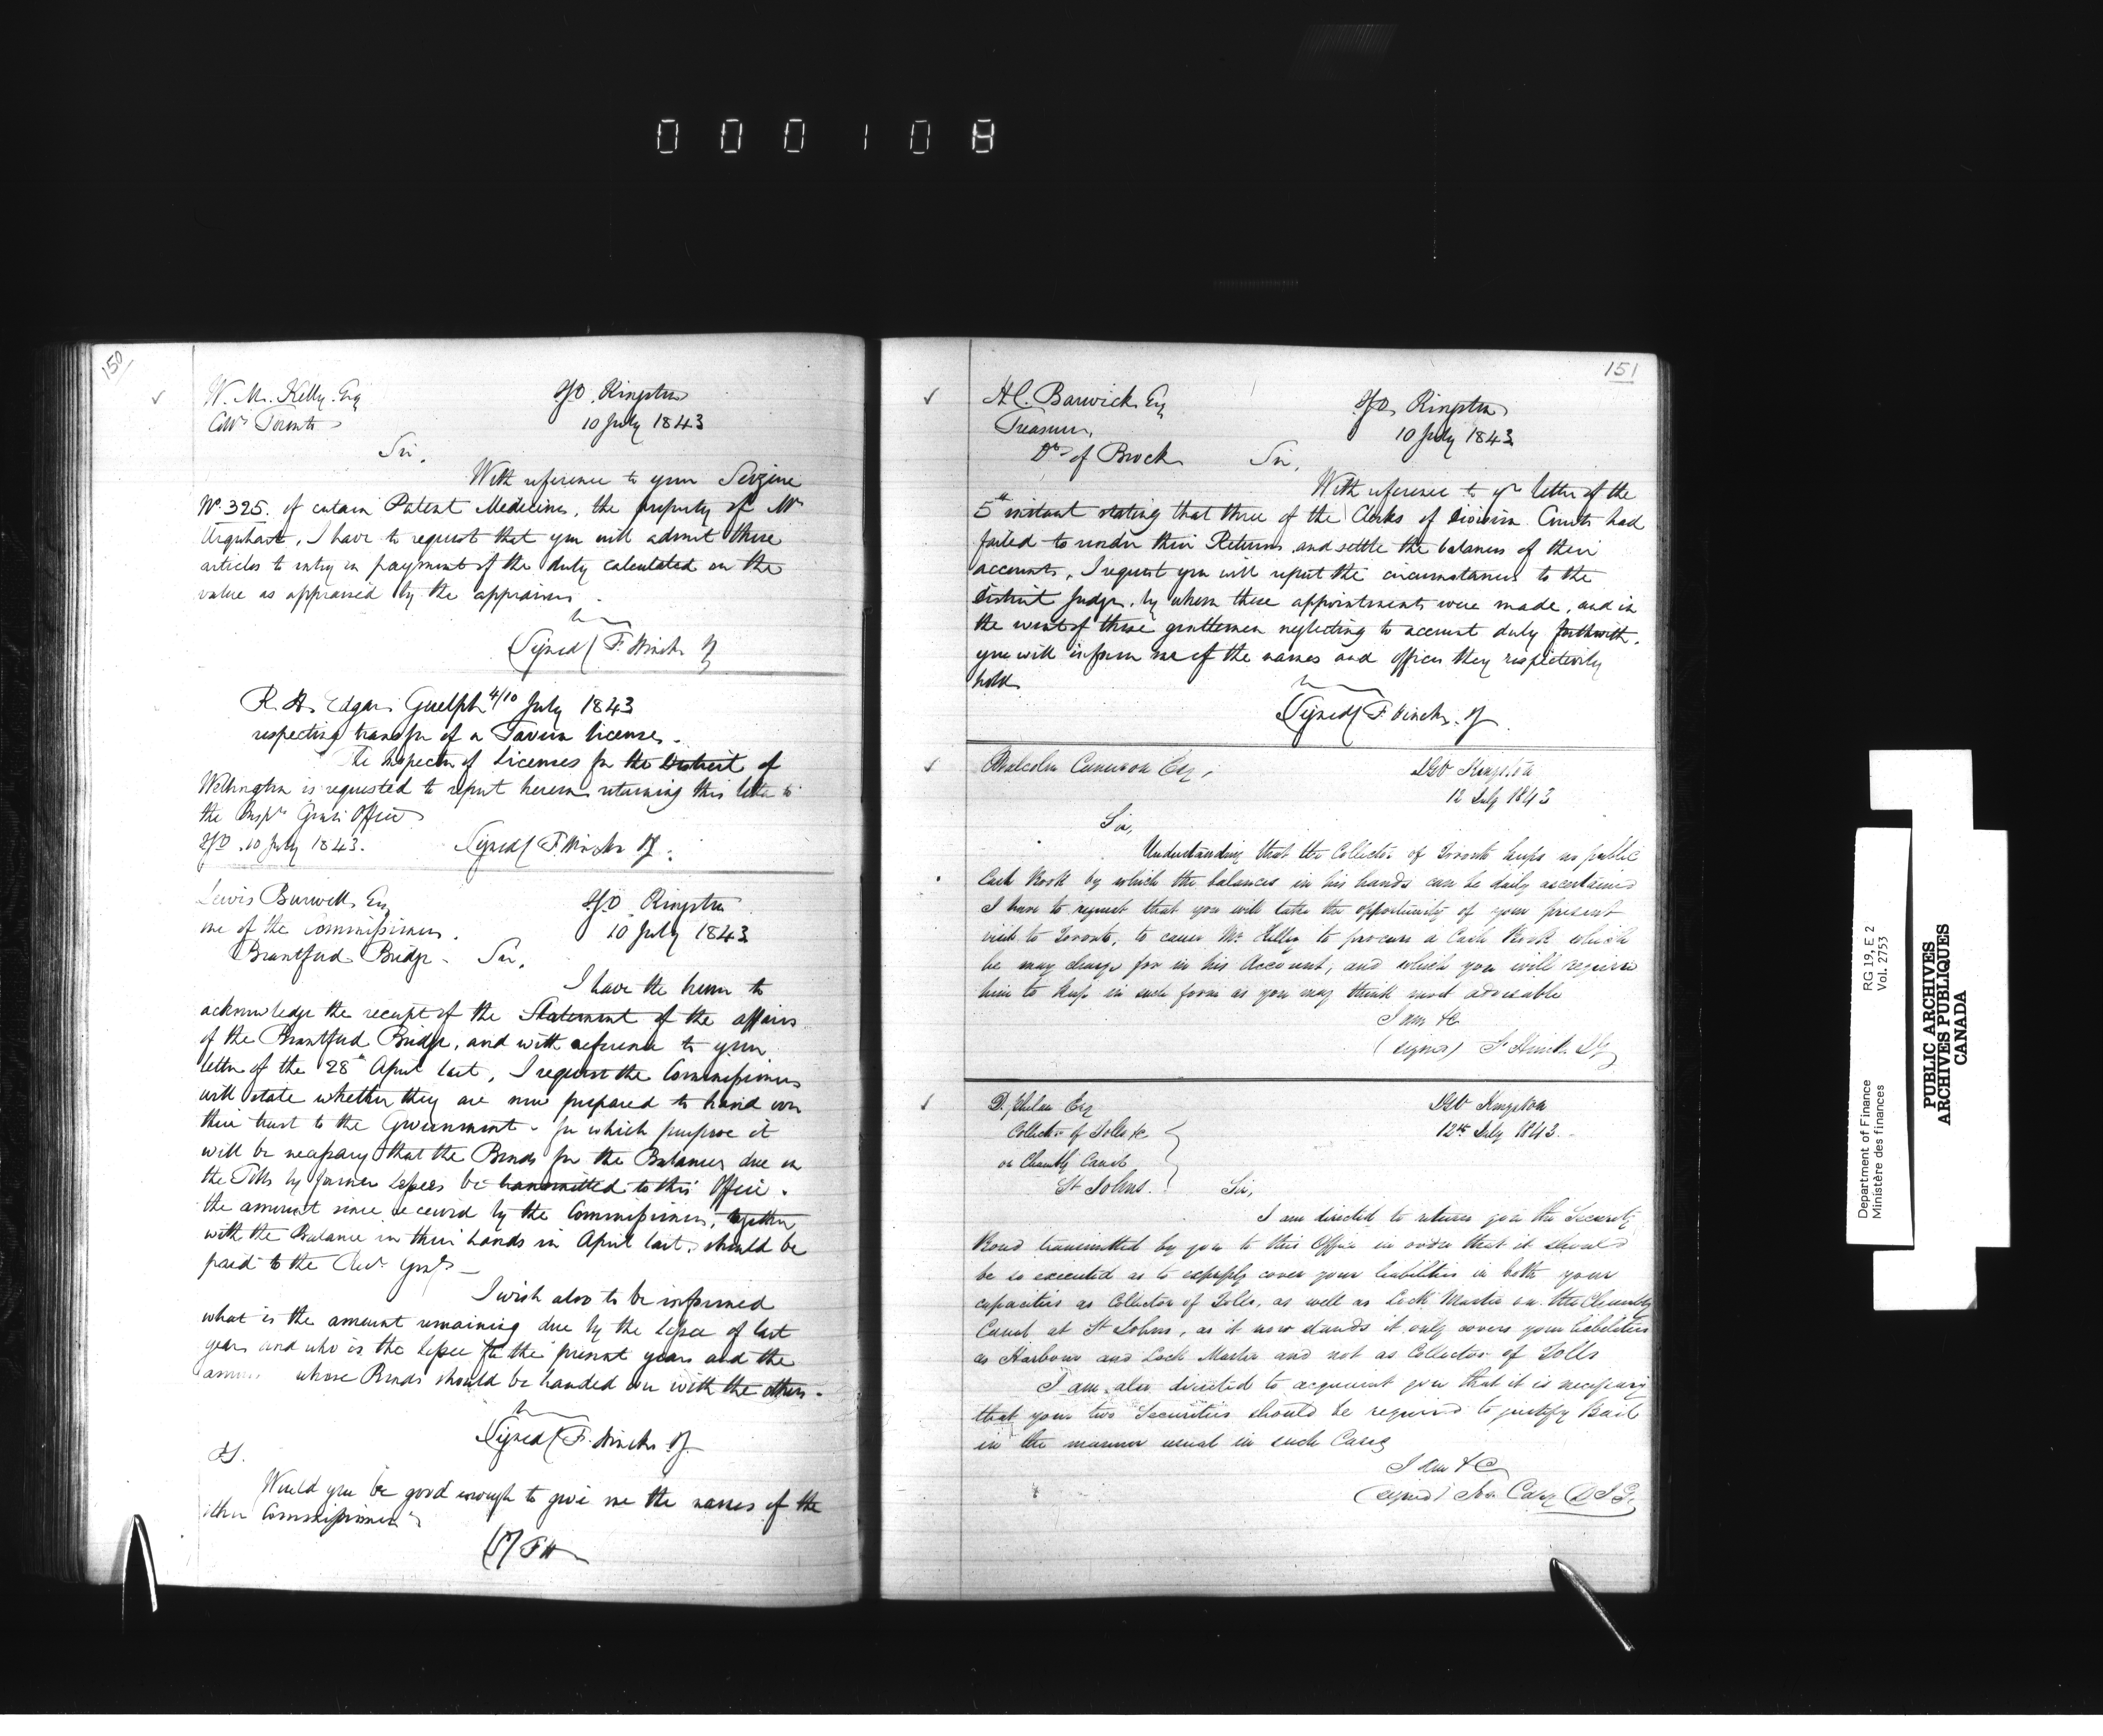 000108
150
W. M. Kelly Esq
Toronto
IGO Kingston
10 July 1843
Sir,
With reference to your Seizure
No 325. of certain Patent Medicines, the property of Mr
Urquhart, I have to request that you will admit these
articles to entry on payment of the duty calculated on the
value as appraised by the appraisers.
Signed / F. Hincks IG
R. H. Edgar Guelph 4/10 July 1843
respecting transfer of a Tavern license.
The Inspector of Licenses for the District of
Wellington is requested to report hereon returning this letter to
the Inspr Genls Office
IGO. 10 July 1843.
Signed / F. Hincks IG.
Lewis Burwell Esq
one of the Commissioners
Brantford Bridge
IGO Kingston
10 July 1843
Sir,
I have the honor to
acknowledge the receipt of the Statement of the affairs
of the Brantford Bridge, and with reference to your
letter of the 28th April last, I request the Commissioners
will state whether they are now prepared to hand over
their trust to the Government - for which purpose it
will be necessary that the Bonds for the Balances due on
the Tolls by former Lessees be transmitted to this Office.
the amount since received by the Commissioners, together
with the Balance in their hands in April last, should be
paid to the Recr Genl
I wish also to be informed
what is the amount remaining due by the Lessee of last
year and who is the Lessee for the present year and the
whose Bonds should be handed over with the others.
Signed / F. Hincks IG.
PS.
Would you be good enough to give me the names of the
other Commissioners
(S) FH
151
H.C. Barwick Esq
Treasurer,
Dt of Brock
IGO Kingston
10 July 1843
Sir,
With reference to yr letter of the
5th instant stating that three of the Clerks of Division Courts had
failed to render their Returns and settle the balances of their
accounts, I request you will report the circumstances to the
District Judge, by whom these appointments were made, and in
the event of these gentlemen neglecting to account duly forthwith,
you will inform me of the names and offices they respectively
hold
Signed / F. Hincks. IG.
Malcolm Cameron Esq,
IGO Kingston
12 July 1843
Sir,
Understanding that the Collector of Toronto keeps no public
Cash Book by which the balances in his hands can be daily ascertained
I have to request that you will take the opportunity of your present
visit to Toronto, to cause Mr. Kelly to procure a Cash Book which
he may charge for in his Account, and which you will require
him to keep in such form as you may think most advisable
I am &c
(signed) F Hincks IG
D. Phelan Esq
Collector of Tolls &c
on Chambly Canal
St Johns.
IGO Kingston
12th July 1843.
Sir,
I am directed to return you the Security
Bond transmitted by you to this Office in order that it should
be so executed as to expressly cover your liabilities in both your
capacities as Collector of Tolls, as well as Lock Master on the Chambly
Canal at St Johns, as it now stands it only covers your liabilities
as Harbour and Lock Master and not as Collector of Tolls
I am also directed to acquaint you that it is necessary
that your two Securities should be required to justify Bail
in the manner usual in such Cases
I am &c
(signed) Jos. Cary D.I.G.
Department of Finance
Ministère des finances
RG 19, E 2
Vol. 2753
PUBLIC ARCHIVES
ARCHIVES PUBLIQUES
CANADA